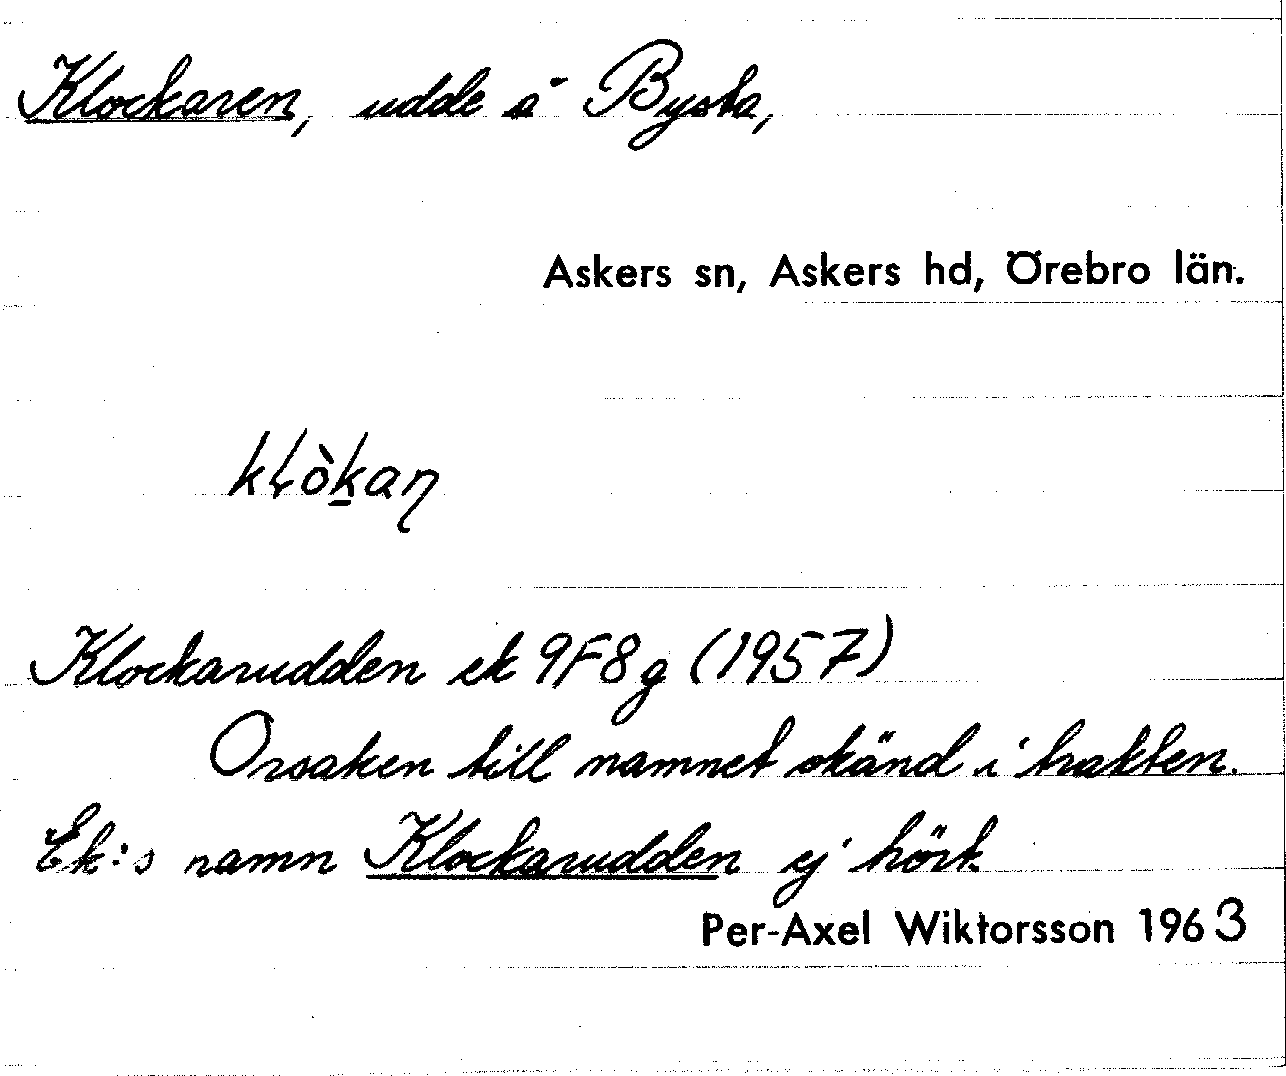 Klockaren, udde å Bysta,
Askers sn, Askers hd, Örebro län.
kɬòk̲aŋ
Klockarudden ek 9F8g (1957)
Orsaken till namnet okänd i trakten.
Ek:s namn Klockarudden ej hört
Per-Axel Wiktorsson 1963